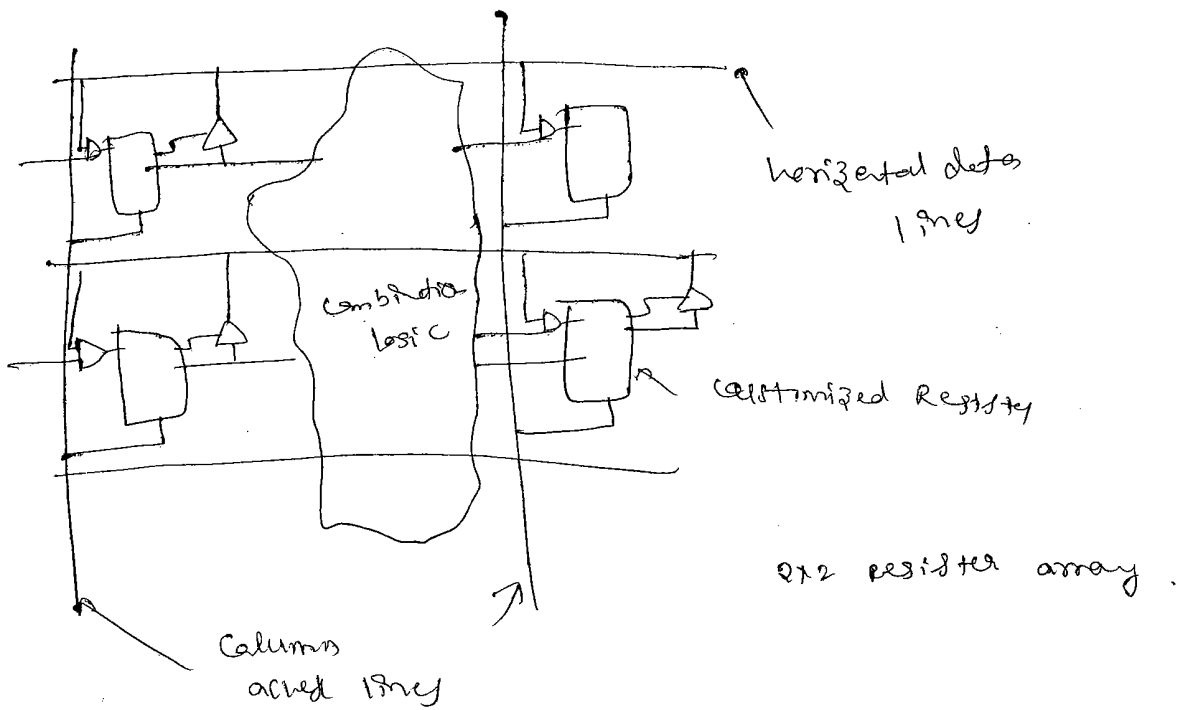 horizental data
lines
combinatio
logic
customized Register
2x2 register array.
Column
lines